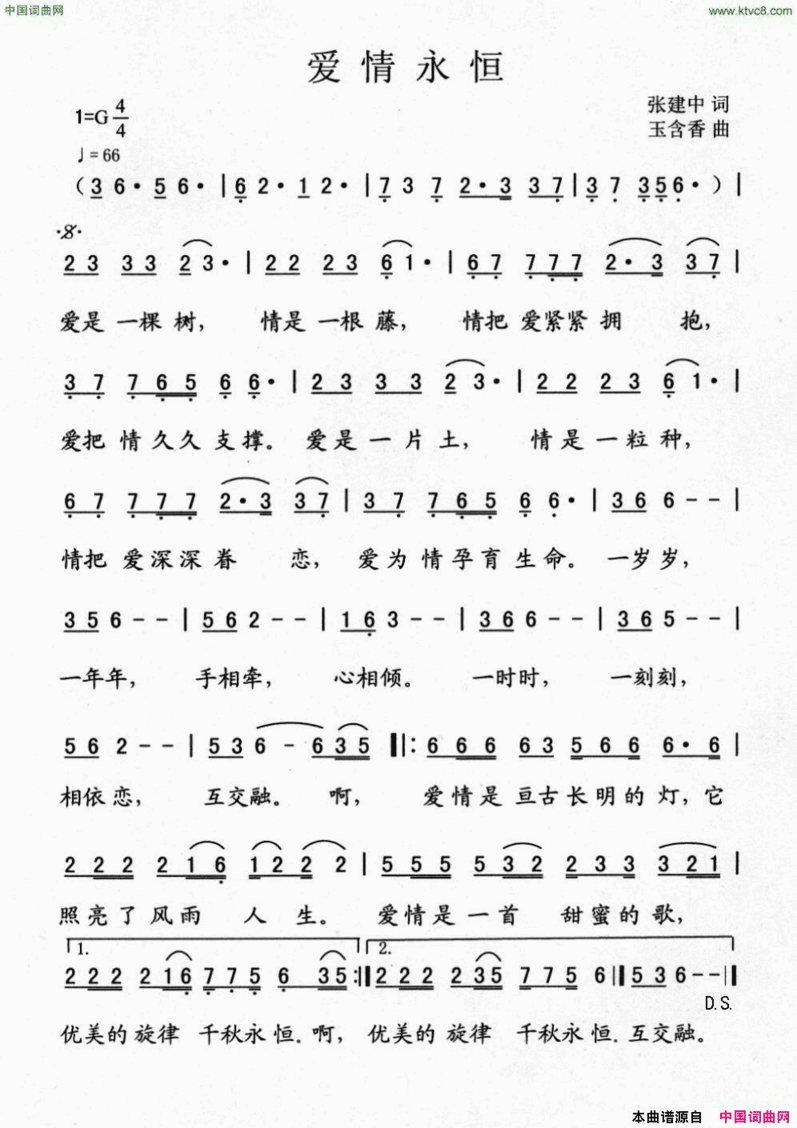 中国词曲网
www.ktvc8.com
爱情永恒
1=G 4/4
张建中 词
玉含香 曲
♩=66
（3 6· 5 6· | 6 2· 1 2· | 7 3 7 2· 3 3 7 | 3 7 3 5 6· ）|
2 3 3 3 2 3· | 2 2 2 3 6 1· | 6 7 7 7 7 2· 3 3 7 |
爱是 一棵 树， 情是 一根 藤， 情把 爱紧紧 拥 抱，
3 7 7 6 5 6 6· | 2 3 3 3 2 3· | 2 2 2 3 6 1· |
爱把 情久久 支撑。 爱是 一片 土， 情是 一粒 种，
6 7 7 7 7 2· 3 3 7 | 3 7 7 6 5 6 6· | 3 6 6 - - |
情把 爱深深 眷 恋， 爱为 情孕育 生命。 一岁岁，
3 5 6 - - | 5 6 2 - - | 1 6 3 - - | 3 6 6 - - | 3 6 5 - - |
一年年， 手相牵， 心相倾。 一时时， 一刻刻，
5 6 2 - - | 5 3 6 - 6 3 5 ‖: 6 6 6 6 3 5 6 6 6· 6 |
相依恋， 互交融。 啊， 爱情是 亘古长明的灯，它
2 2 2 2 1 6 1 2 2 2 | 5 5 5 5 3 2 2 3 3 3 2 |
照亮了 风雨 人 生。 爱情是 一首 甜蜜的歌，
1. 2.
2 2 2 2 1 6 7 7 5 6 3 5 :‖ 2 2 2 2 3 5 7 7 5 6 ‖ 5 3 6 - - ‖
D.S.
优美的 旋律 千秋永 恒.啊， 优美的 旋律 千秋永 恒.互交融。
本曲谱源自 中国词曲网